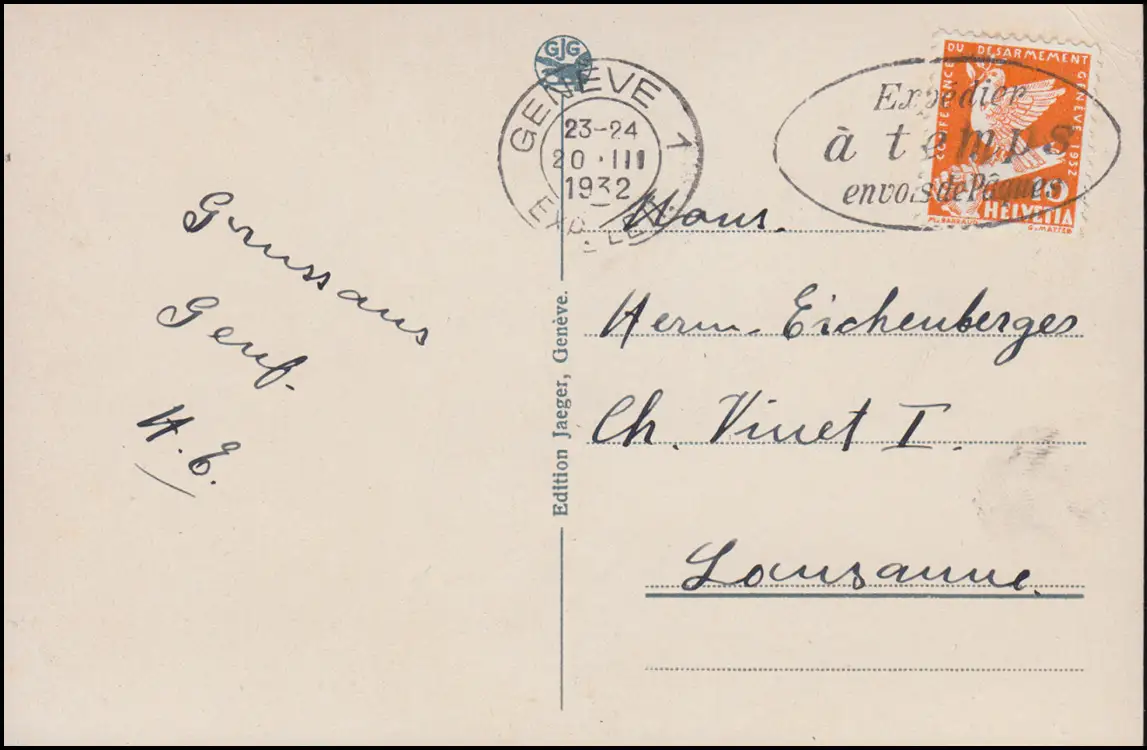 GJG
GENÈVE 1
23-24
20·III
1932
EXP. LET.
CONFERENCE DU DESARMEMENT GENEVE 1932
10
HELVETIA
M. BARRAUD G. MATTER
Expédier
à temps
envois de Pâques
Gruss aus
Genf.
H. E.
Edition Jaeger, Genève.
Herm. Eichenberger
Ch. Vinet I.
Lausanne.